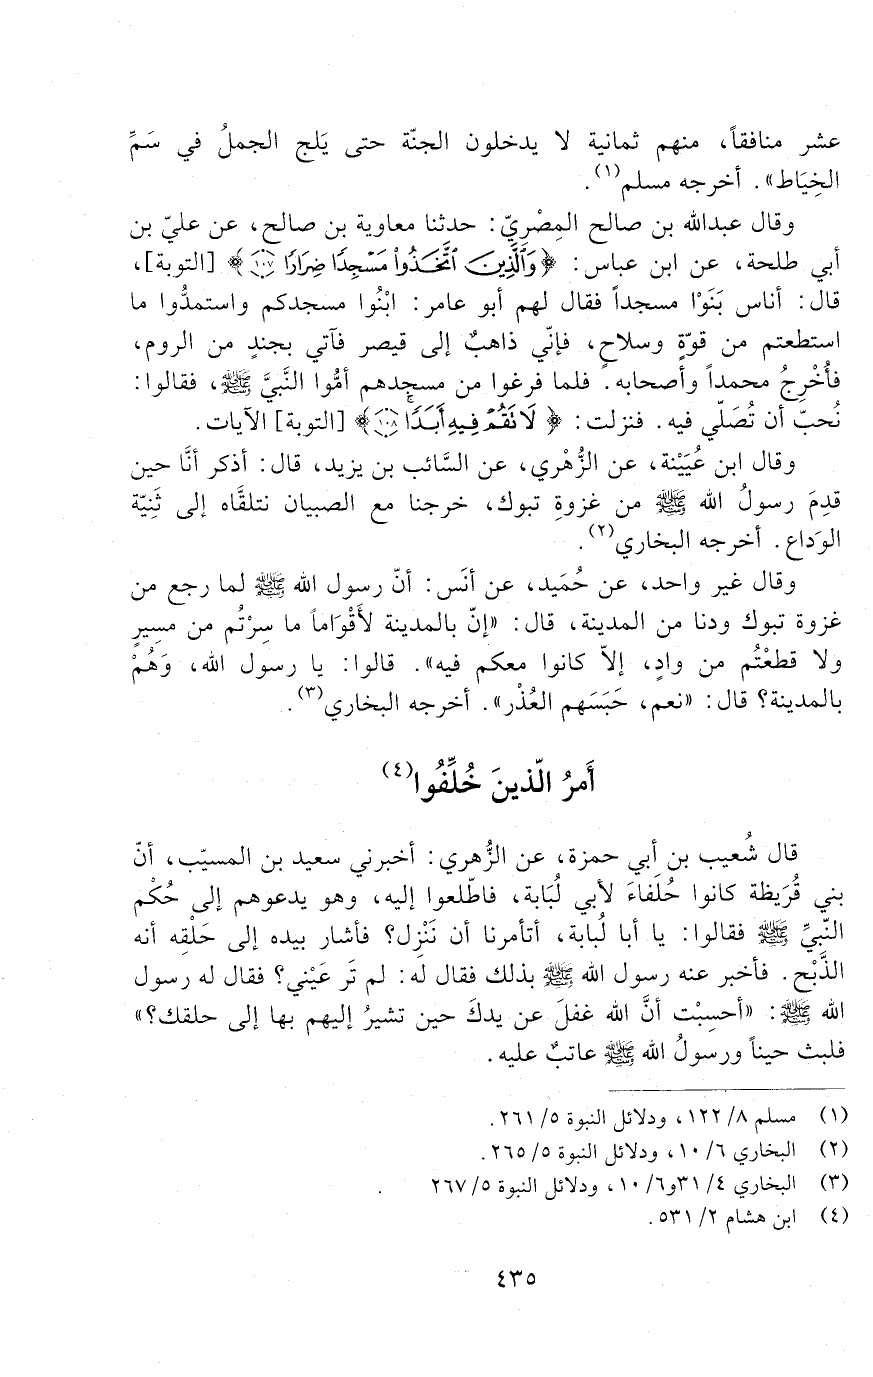 عشر منافقاً، منهم ثمانية لا يدخلون الجنّة حتى يَلج الجملُ في سَمِّ
الخِيَاط». أخرجه مسلم(١).
وقال عبدالله بن صالح المِصْريّ: حدثنا معاوية بن صالح، عن عليّ بن
أبي طلحة، عن ابن عباس: ﴿وَٱلَّذِينَ ٱتَّخَذُواْ مَسْجِدًا ضِرَارًا ۝١٠٧﴾ [التوبة]،
قال: أناس بَنَوْا مسجداً فقال لهم أبو عامر: ابْنُوا مسجدكم واستمدُّوا ما
استطعتم من قوّةٍ وسلاحٍ، فإنّي ذاهبٌ إلى قيصر فآتي بجندٍ من الروم،
فأُخْرِجُ محمداً وأصحابه. فلما فرغوا من مسجدهم أمُّوا النَّبيَّ ﷺ، فقالوا:
نُحبّ أن تُصَلّي فيه. فنزلت: ﴿لَا نَقُمْ فِيهِ أَبَدًا ۝١٠٨﴾ [التوبة] الآيات.
وقال ابن عُيَيْنة، عن الزُّهْري، عن السَّائب بن يزيد، قال: أذكر أنَّا حين
قدِمَ رسولُ الله ﷺ من غزوةِ تبوك، خرجنا مع الصبيان نتلقَّاه إلى ثَنِيّة
الوَداع. أخرجه البخاري(٢).
وقال غير واحد، عن حُمَيد، عن أنَس: أنّ رسول الله ﷺ لما رجع من
غزوة تبوك ودنا من المدينة، قال: «إنّ بالمدينة لأَقْوَاماً ما سِرْتُم من مسِيرٍ
ولا قطعْتُم من وادٍ، إلاّ كانوا معكم فيه». قالوا: يا رسول الله، وَهُمْ
بالمدينة؟ قال: «نعم، حَبَسَهم العُذْر». أخرجه البخاري(٣).
أَمرُ الّذينَ خُلِّفُوا(٤)
قال شُعيب بن أبي حمزة، عن الزُّهري: أخبرني سعيد بن المسيّب، أنّ
بني قُرَيظة كانوا حُلَفاءَ لأبي لُبَابة، فاطّلعوا إليه، وهو يدعوهم إلى حُكْم
النّبيِّ ﷺ فقالوا: يا أبا لُبابة، أتأمرنا أن نَنْزِل؟ فأشار بيده إلى حَلْقِه أنه
الذَّبْح. فأخبر عنه رسول الله ﷺ بذلك فقال له: لم تَر عَيْني؟ فقال له رسول
الله ﷺ: «أحسِبْت أنَّ الله غفلَ عن يدكَ حين تشيرُ إليهم بها إلى حلقك؟»
فلبث حيناً ورسولُ الله ﷺ عاتبٌ عليه.
(١) مسلم ٨/ ١٢٢، ودلائل النبوة ٥/ ٢٦١.
(٢) البخاري ٦/ ١٠، ودلائل النبوة ٥/ ٢٦٥.
(٣) البخاري ٤/ ٣١و٦/ ١٠، ودلائل النبوة ٥/ ٢٦٧.
(٤) ابن هشام ٢/ ٥٣١.
٤٣٥